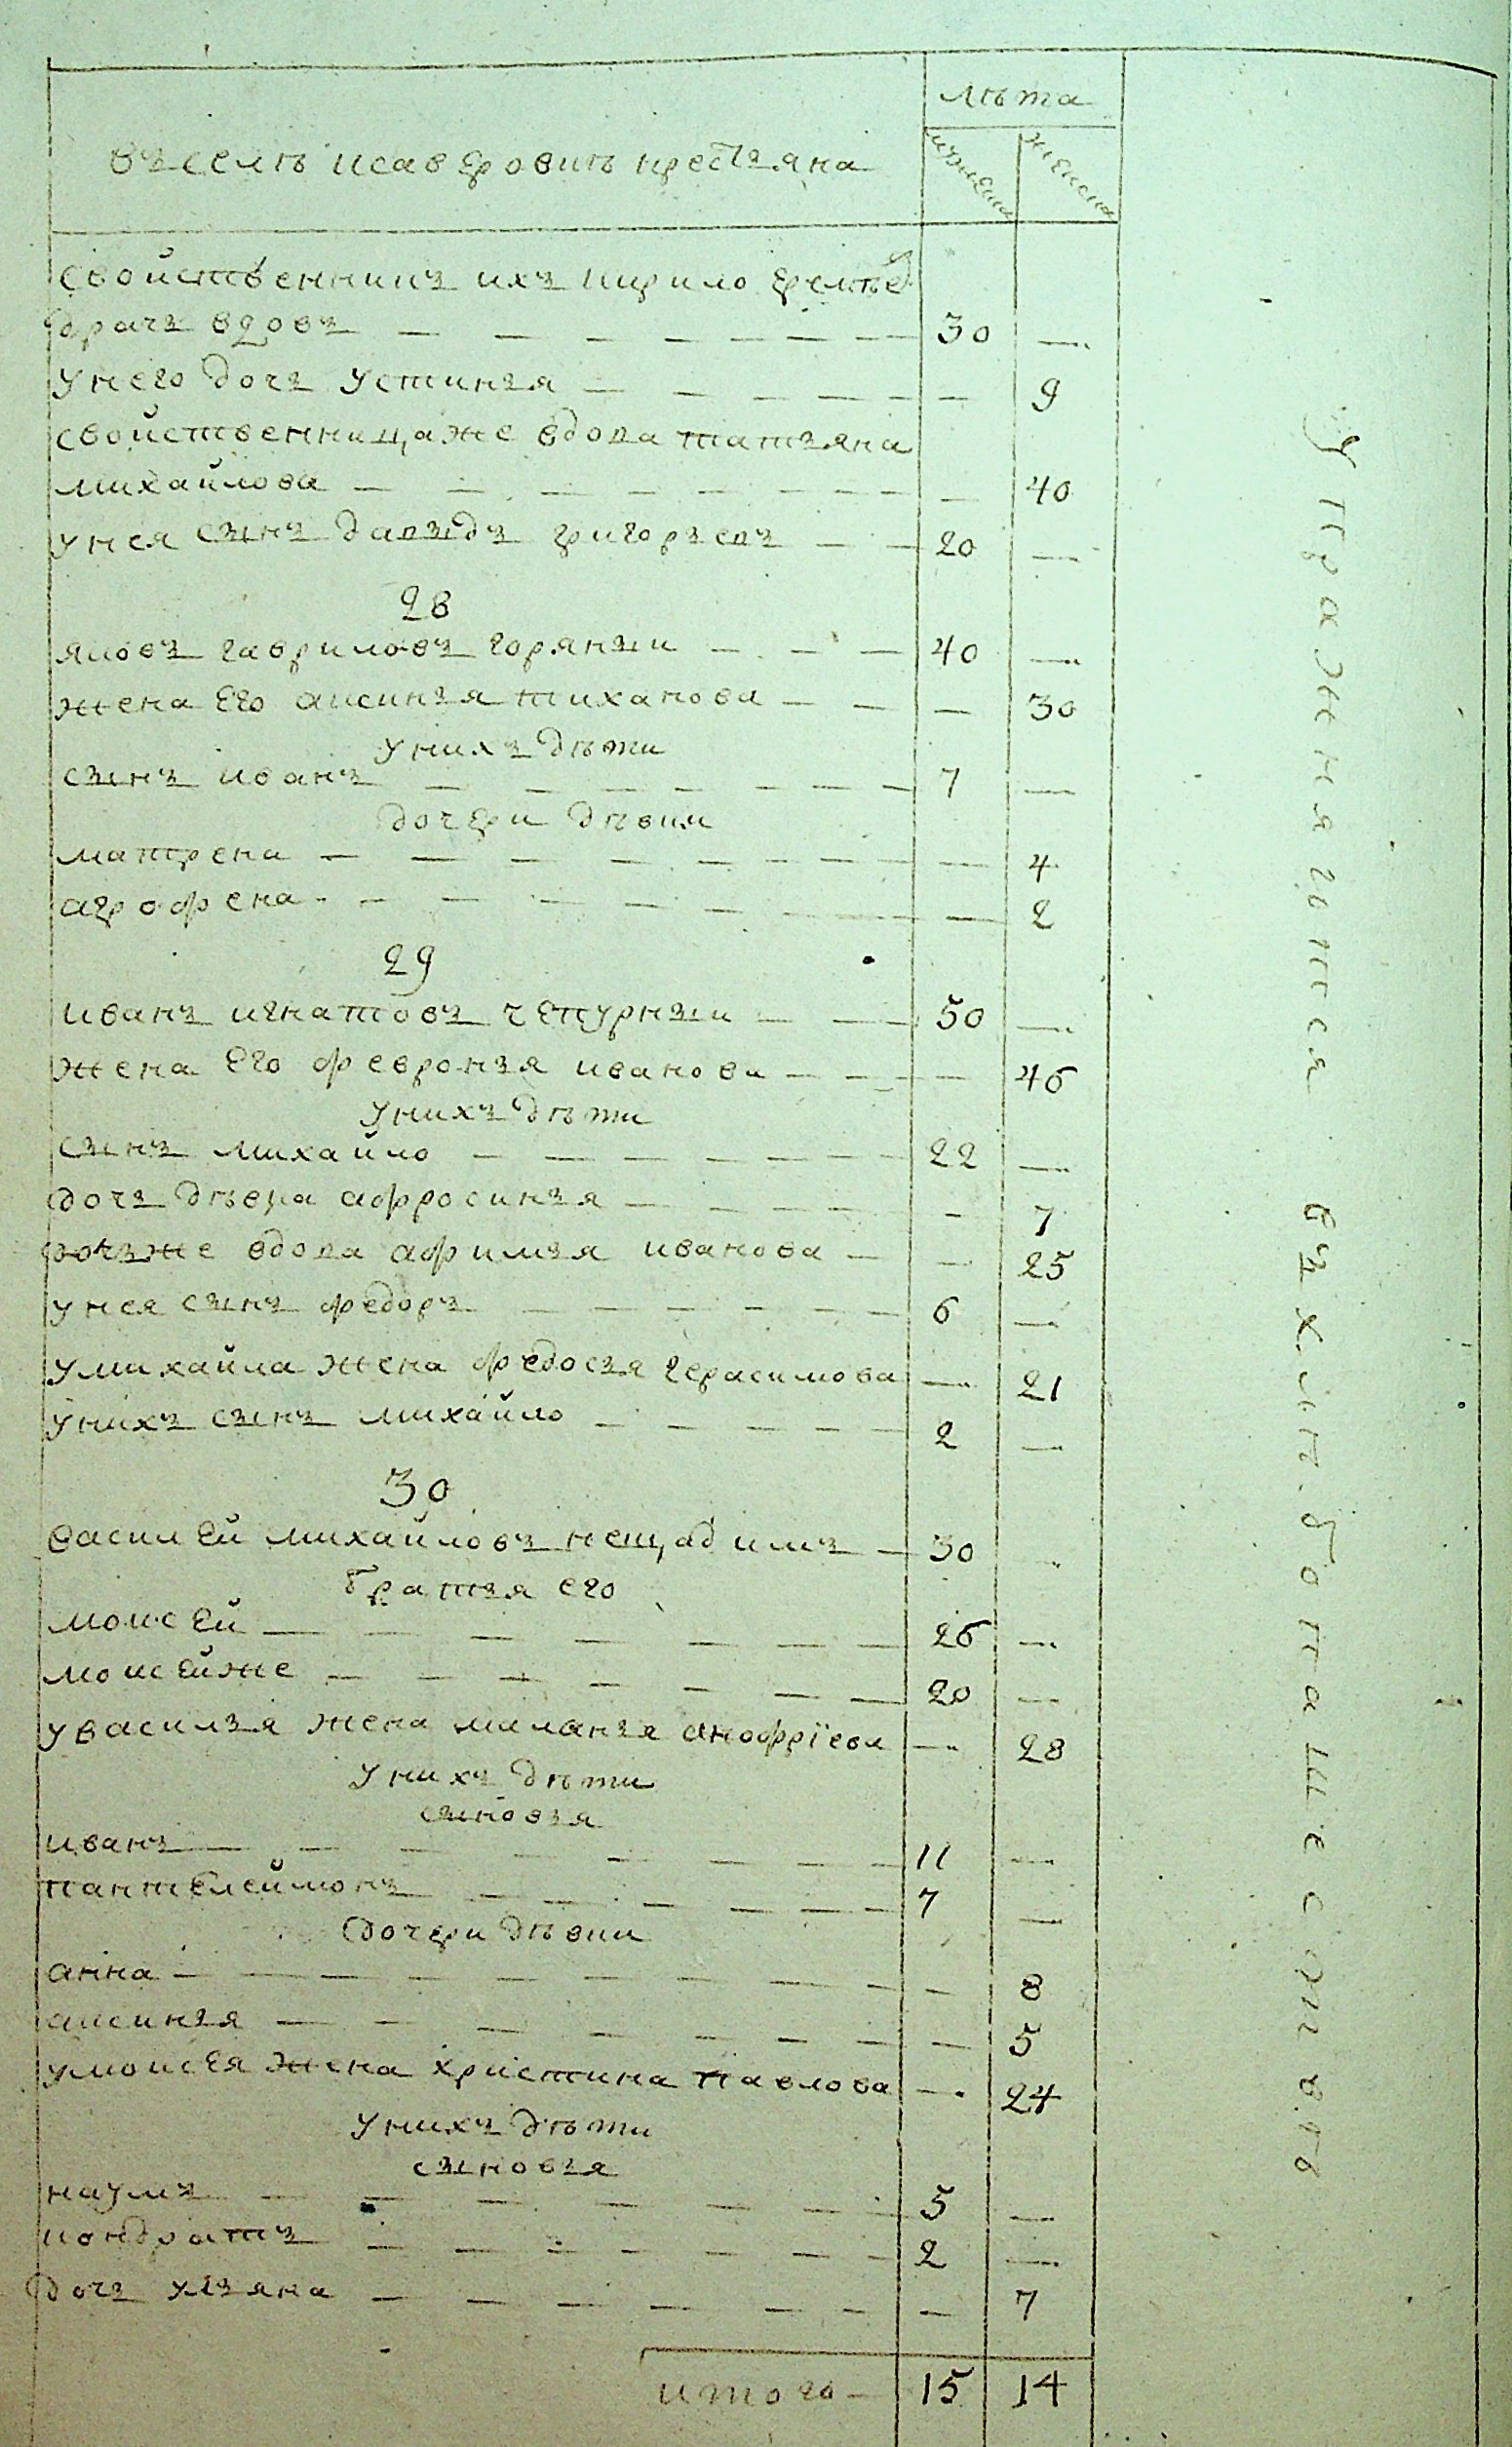 лѣта
мужеска женска
въ селѣ исаверовкѣ крестьяна
свойственникъ ихъ кирило еремѣев
драчъ вдовъ — 30 —
у него дочь устинья — — 9
свойственница же вдова татьяна
михайлова — — 40
у нея сынъ давыдъ григорьевъ — 20 —
28
яковъ гавриловъ горяныи — 40 —
жена его аксинья тиханова — — 30
у нихъ дѣти
сынъ иванъ — 7 —
дочери дѣвки
матрена — — 4
агрофена — — 2
29
иванъ игнатовъ чепурныи — 50 —
жена его февронья иванова — — 46
у нихъ дѣти
сынъ михайло — 22 —
дочь дѣвка афросинья — — 7
дочь же вдова афимья иванова — — 25
у нея сынъ федоръ — 6 —
у михайла жена федосья герасимова — 21
у нихъ сынъ михайло — 2 —
30
василей михайловъ нещадимъ — 30 —
братья его
моисей — 26 —
моисей же — 20 —
у василья жена маланья анофріева — 28
у нихъ дѣти
сыновья
иванъ — 11 —
пантелеймонъ — 7 —
дочери дѣвки
анна — — 8
аксинья — — 5
у моисея жена христина павлова — 24
у нихъ дѣти
сыновья
наумъ — 5 —
кондратъ — 2 —
дочь ульяна — — 7
итого — 15 14
упражняются въ хлѣбопашествѣ